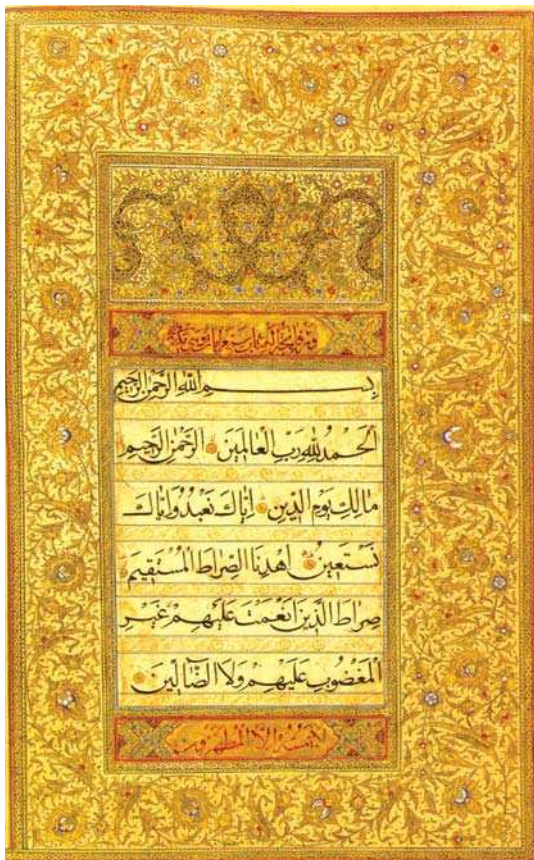 فاتحة الكتاب سبع ايات وهي مكية
بِسْمِ اللّٰهِ الرَّحْمٰنِ الرَّحِيمِ
اَلْحَمْدُ لِلّٰهِ رَبِّ الْعَالَمِينَ الرَّحْمٰنِ الرَّحِيمِ
مَالِكِ يَوْمِ الدِّينِ اِيَّاكَ نَعْبُدُ وَاِيَّاكَ
نَسْتَعِينُ اِهْدِنَا الصِّرَاطَ الْمُسْتَقِيمَ
صِرَاطَ الَّذِينَ اَنْعَمْتَ عَلَيْهِمْ غَيْرِ
الْمَغْضُوبِ عَلَيْهِمْ وَلَا الضَّآلِّينَ
لا يمسه الا المطهرون